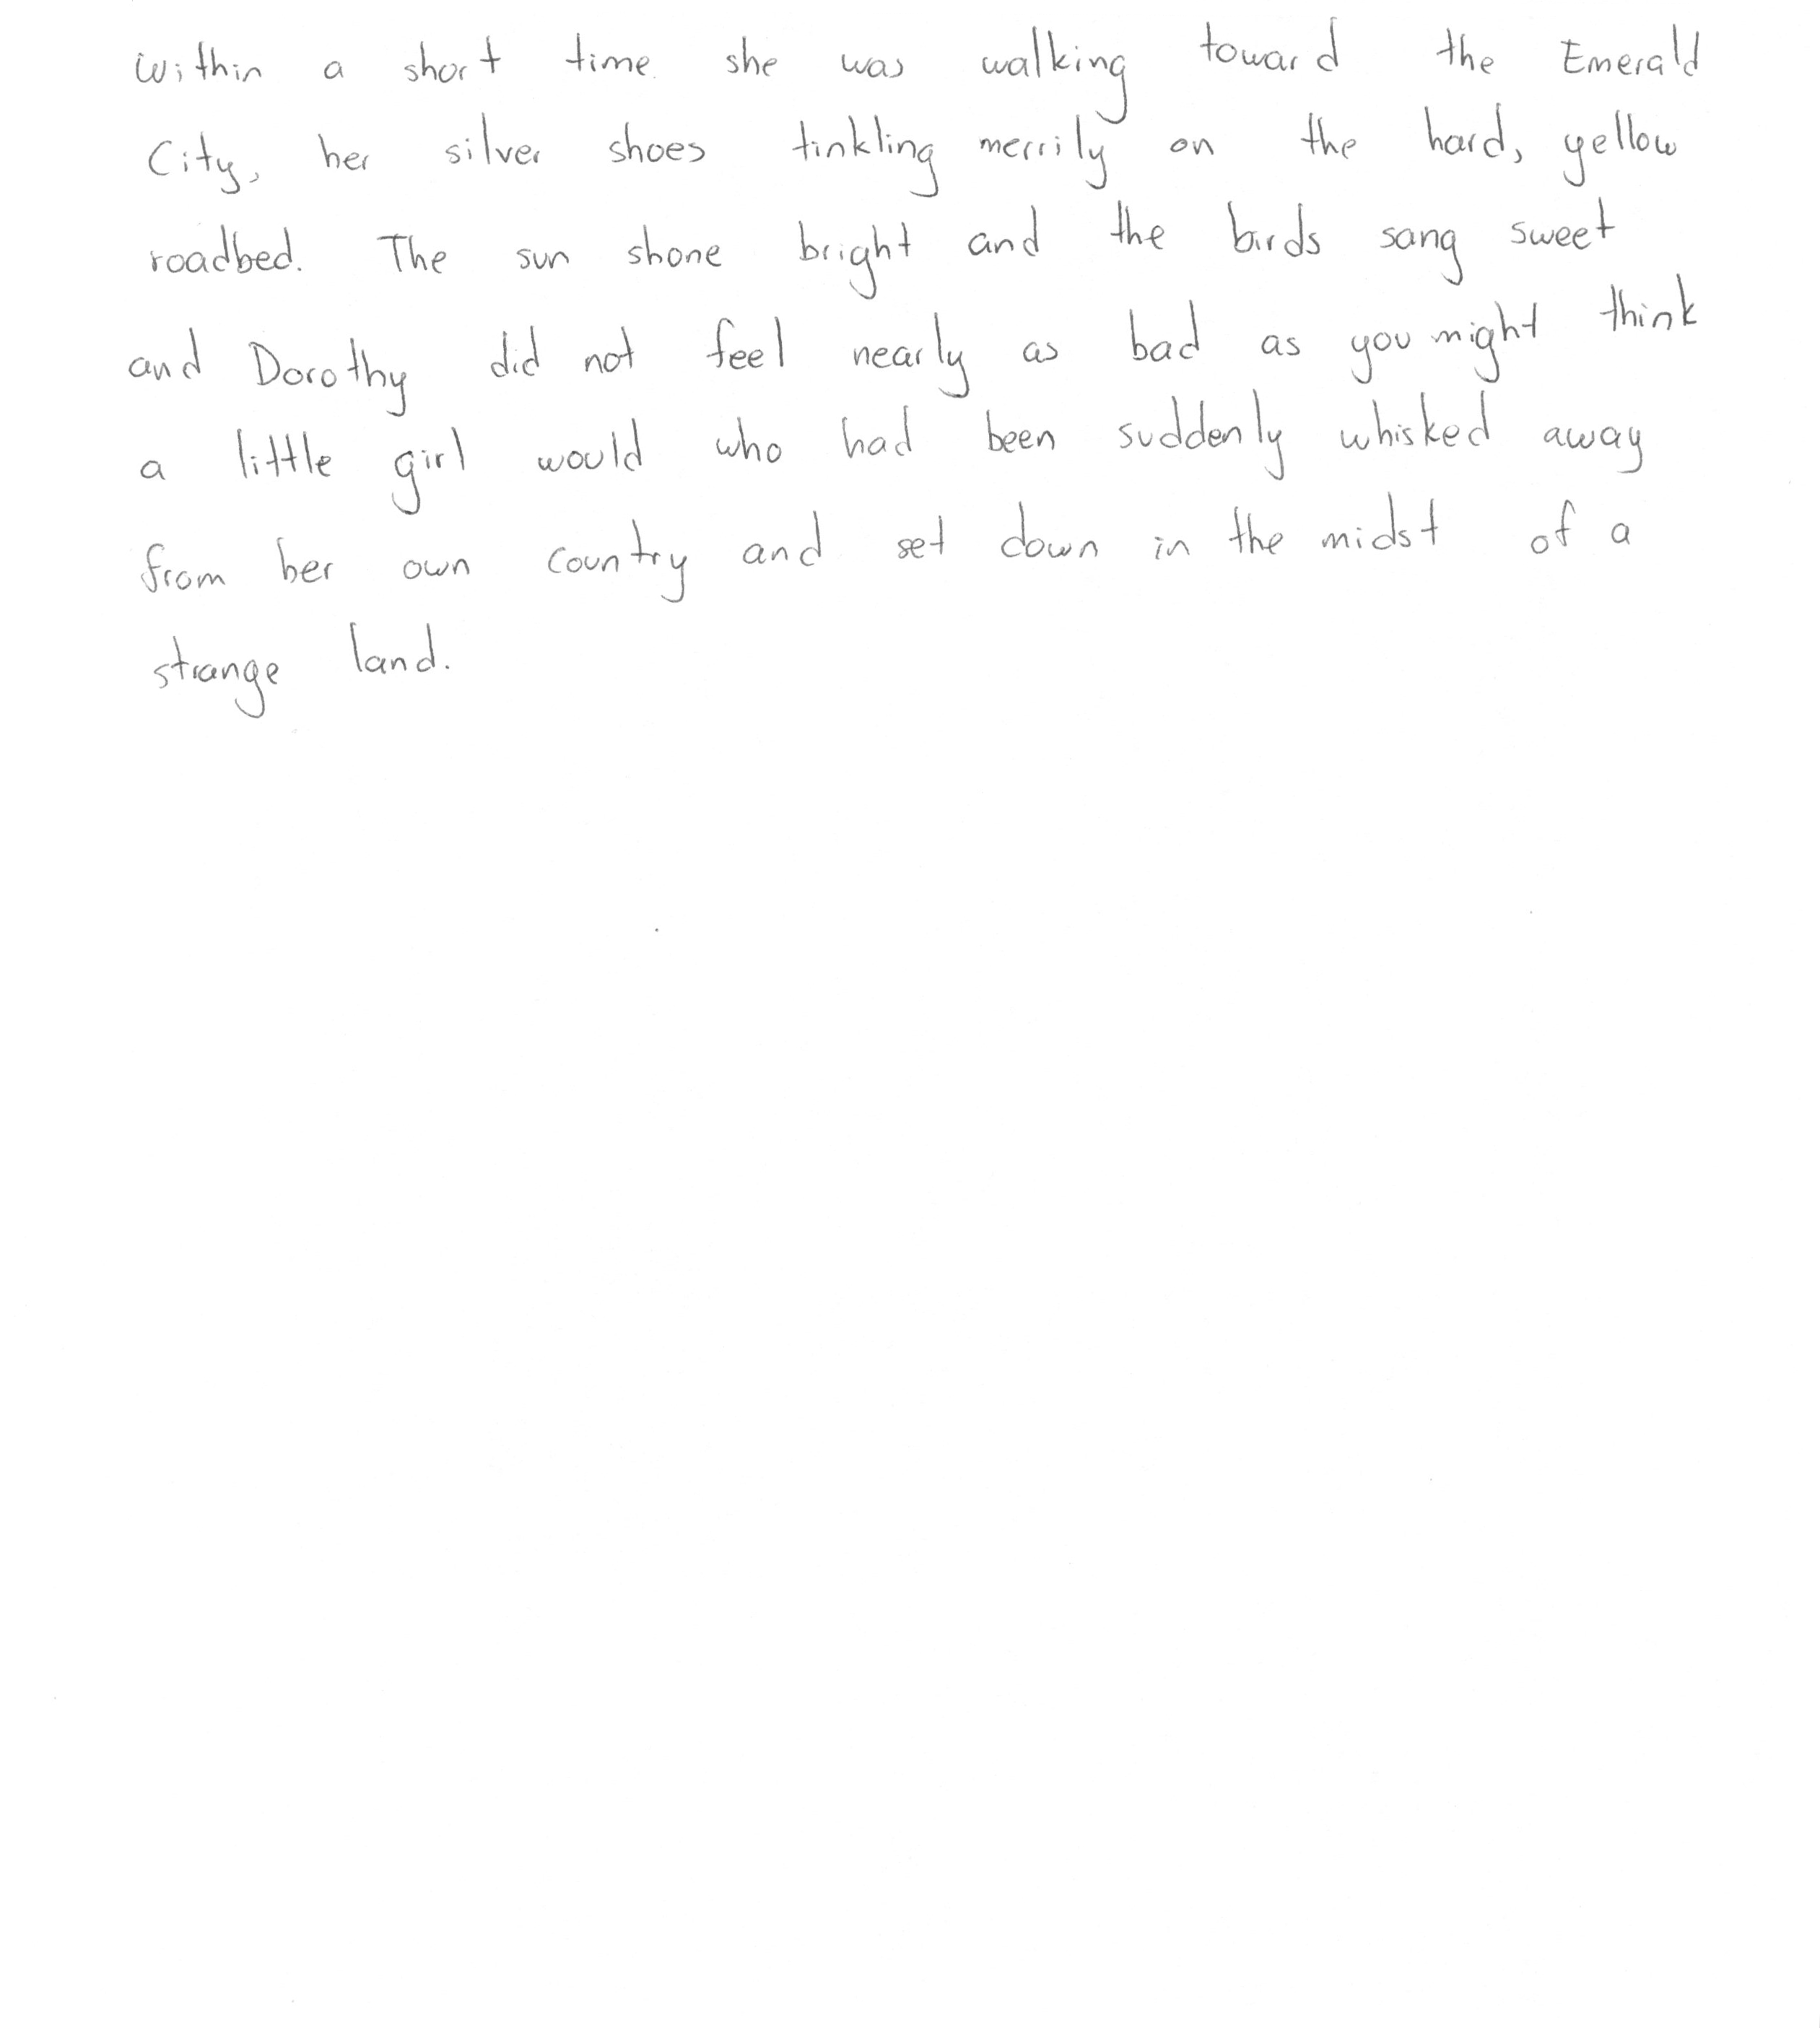 within a short time she was walking toward the Emerald
City, her silver shoes tinkling merrily on the hard, yellow
roadbed. The sun shone bright and the birds sang sweet
and Dorothy did not feel nearly as bad as you might think
a little girl would who had been suddenly whisked away
from her own country and set down in the midst of a
strange land.